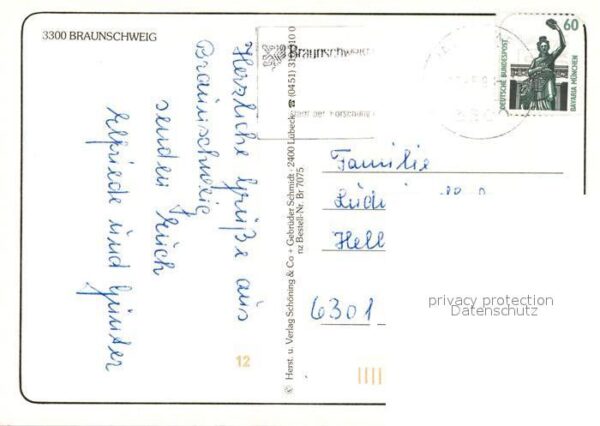 3300 BRAUNSCHWEIG
Herzliche Grüße aus
Braunschweig
senden Euch
Elfriede und Günter
© Herst. u. Verlag Schöning & Co + Gebrüder Schmidt · 2400 Lübeck ☎ (0451) 3
nz Bestell-Nr. Br 7075
Braunschweig
der Forschung
60
DEUTSCHE BUNDESPOST
BAVARIA MÜNCHEN
Familie
Hell
6301
12
privacy protection
Datenschutz